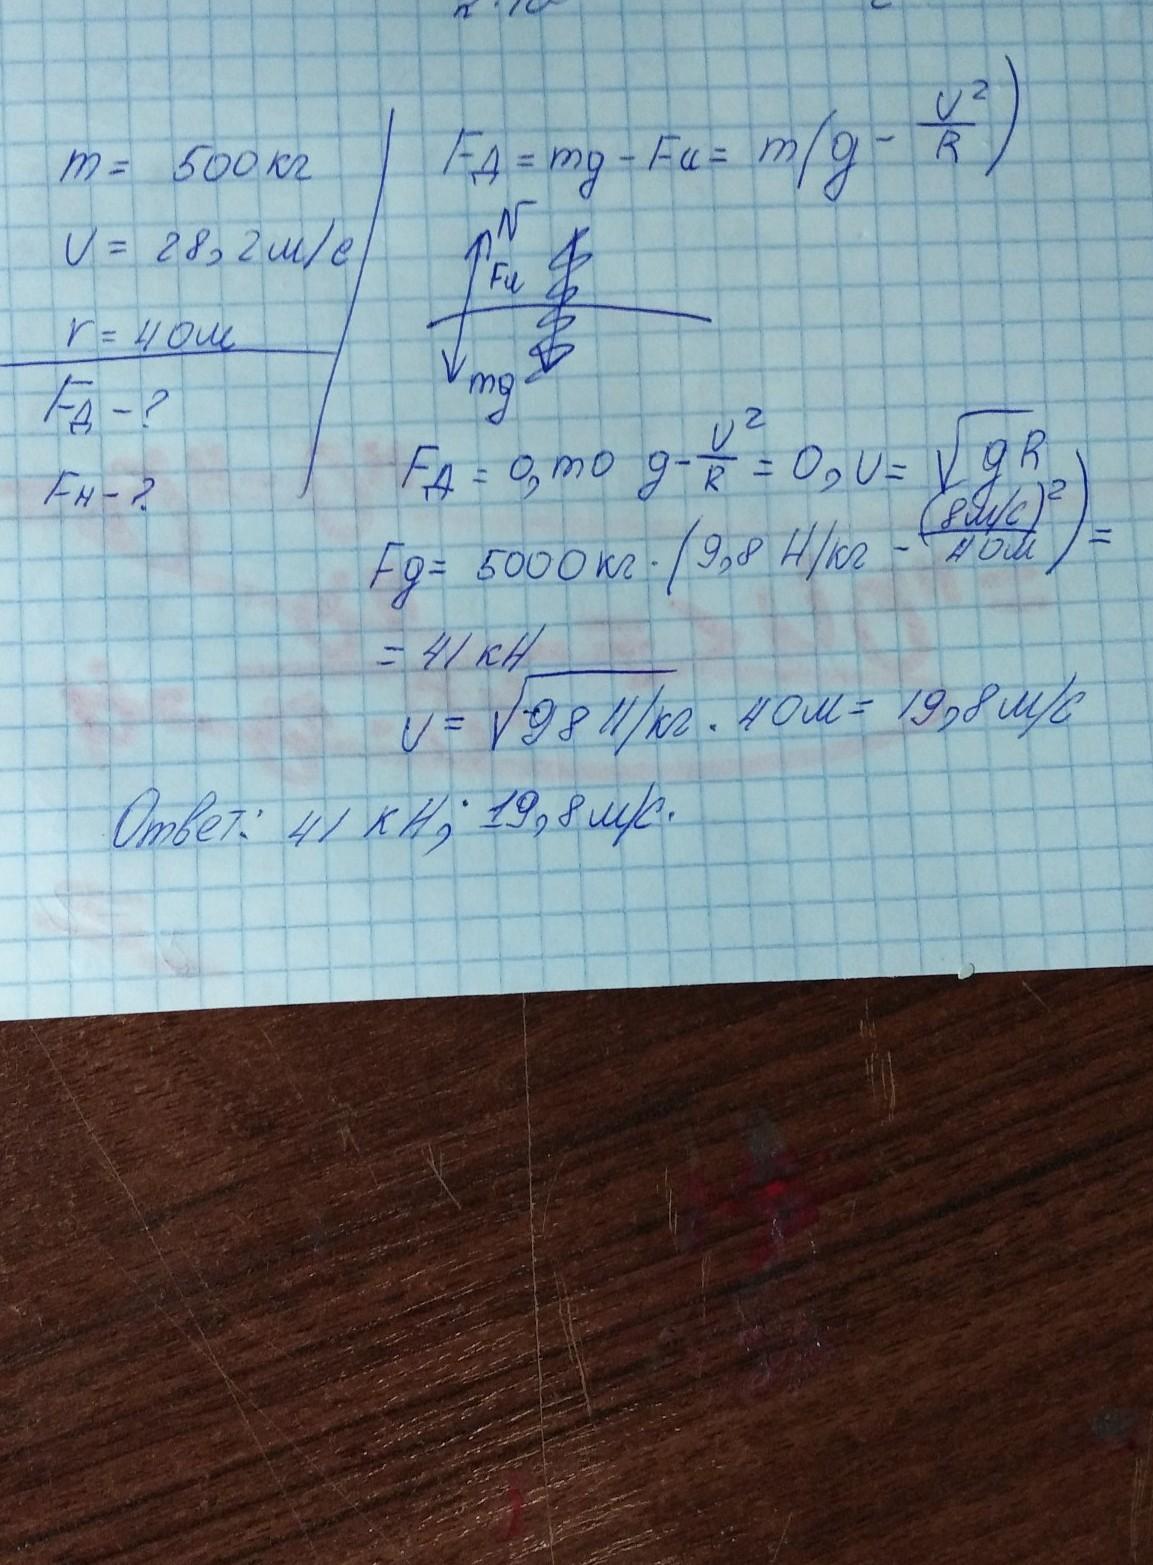 m = 500кг
v = 28,2м/с
r = 40м
Fд - ?
Fн - ?
Fд = mg - Fu = m(g - v²/R)
N
Fu
mg
Fд = 0, то g - v²/R = 0, v = √gR
Fg = 5000кг · (9,8 Н/кг - (8м/с)²/40м) =
= 41 кН
v = √98 Н/кг · 40м = 19,8м/с
Ответ: 41 кН; 19,8м/с.